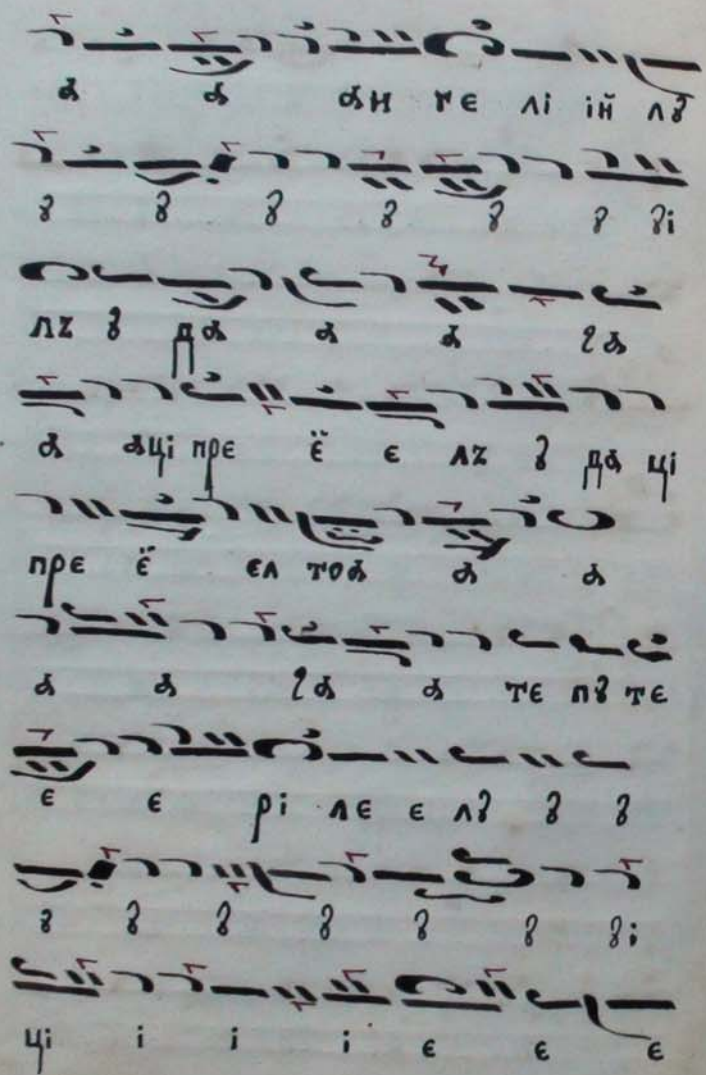 а а ан ге лі ій лꙋ
ꙋ ꙋ ꙋ ꙋ ꙋ ꙋ ꙋі
лъ ꙋ да а а
а аці пре ё е лъ ꙋ да ці
пре ё ел тоа а а
а а а те пꙋ те
е е рі ле е лꙋ ꙋ ꙋ
ꙋ ꙋ ꙋ ꙋ ꙋ ꙋ ꙋі
ці і і і е е е